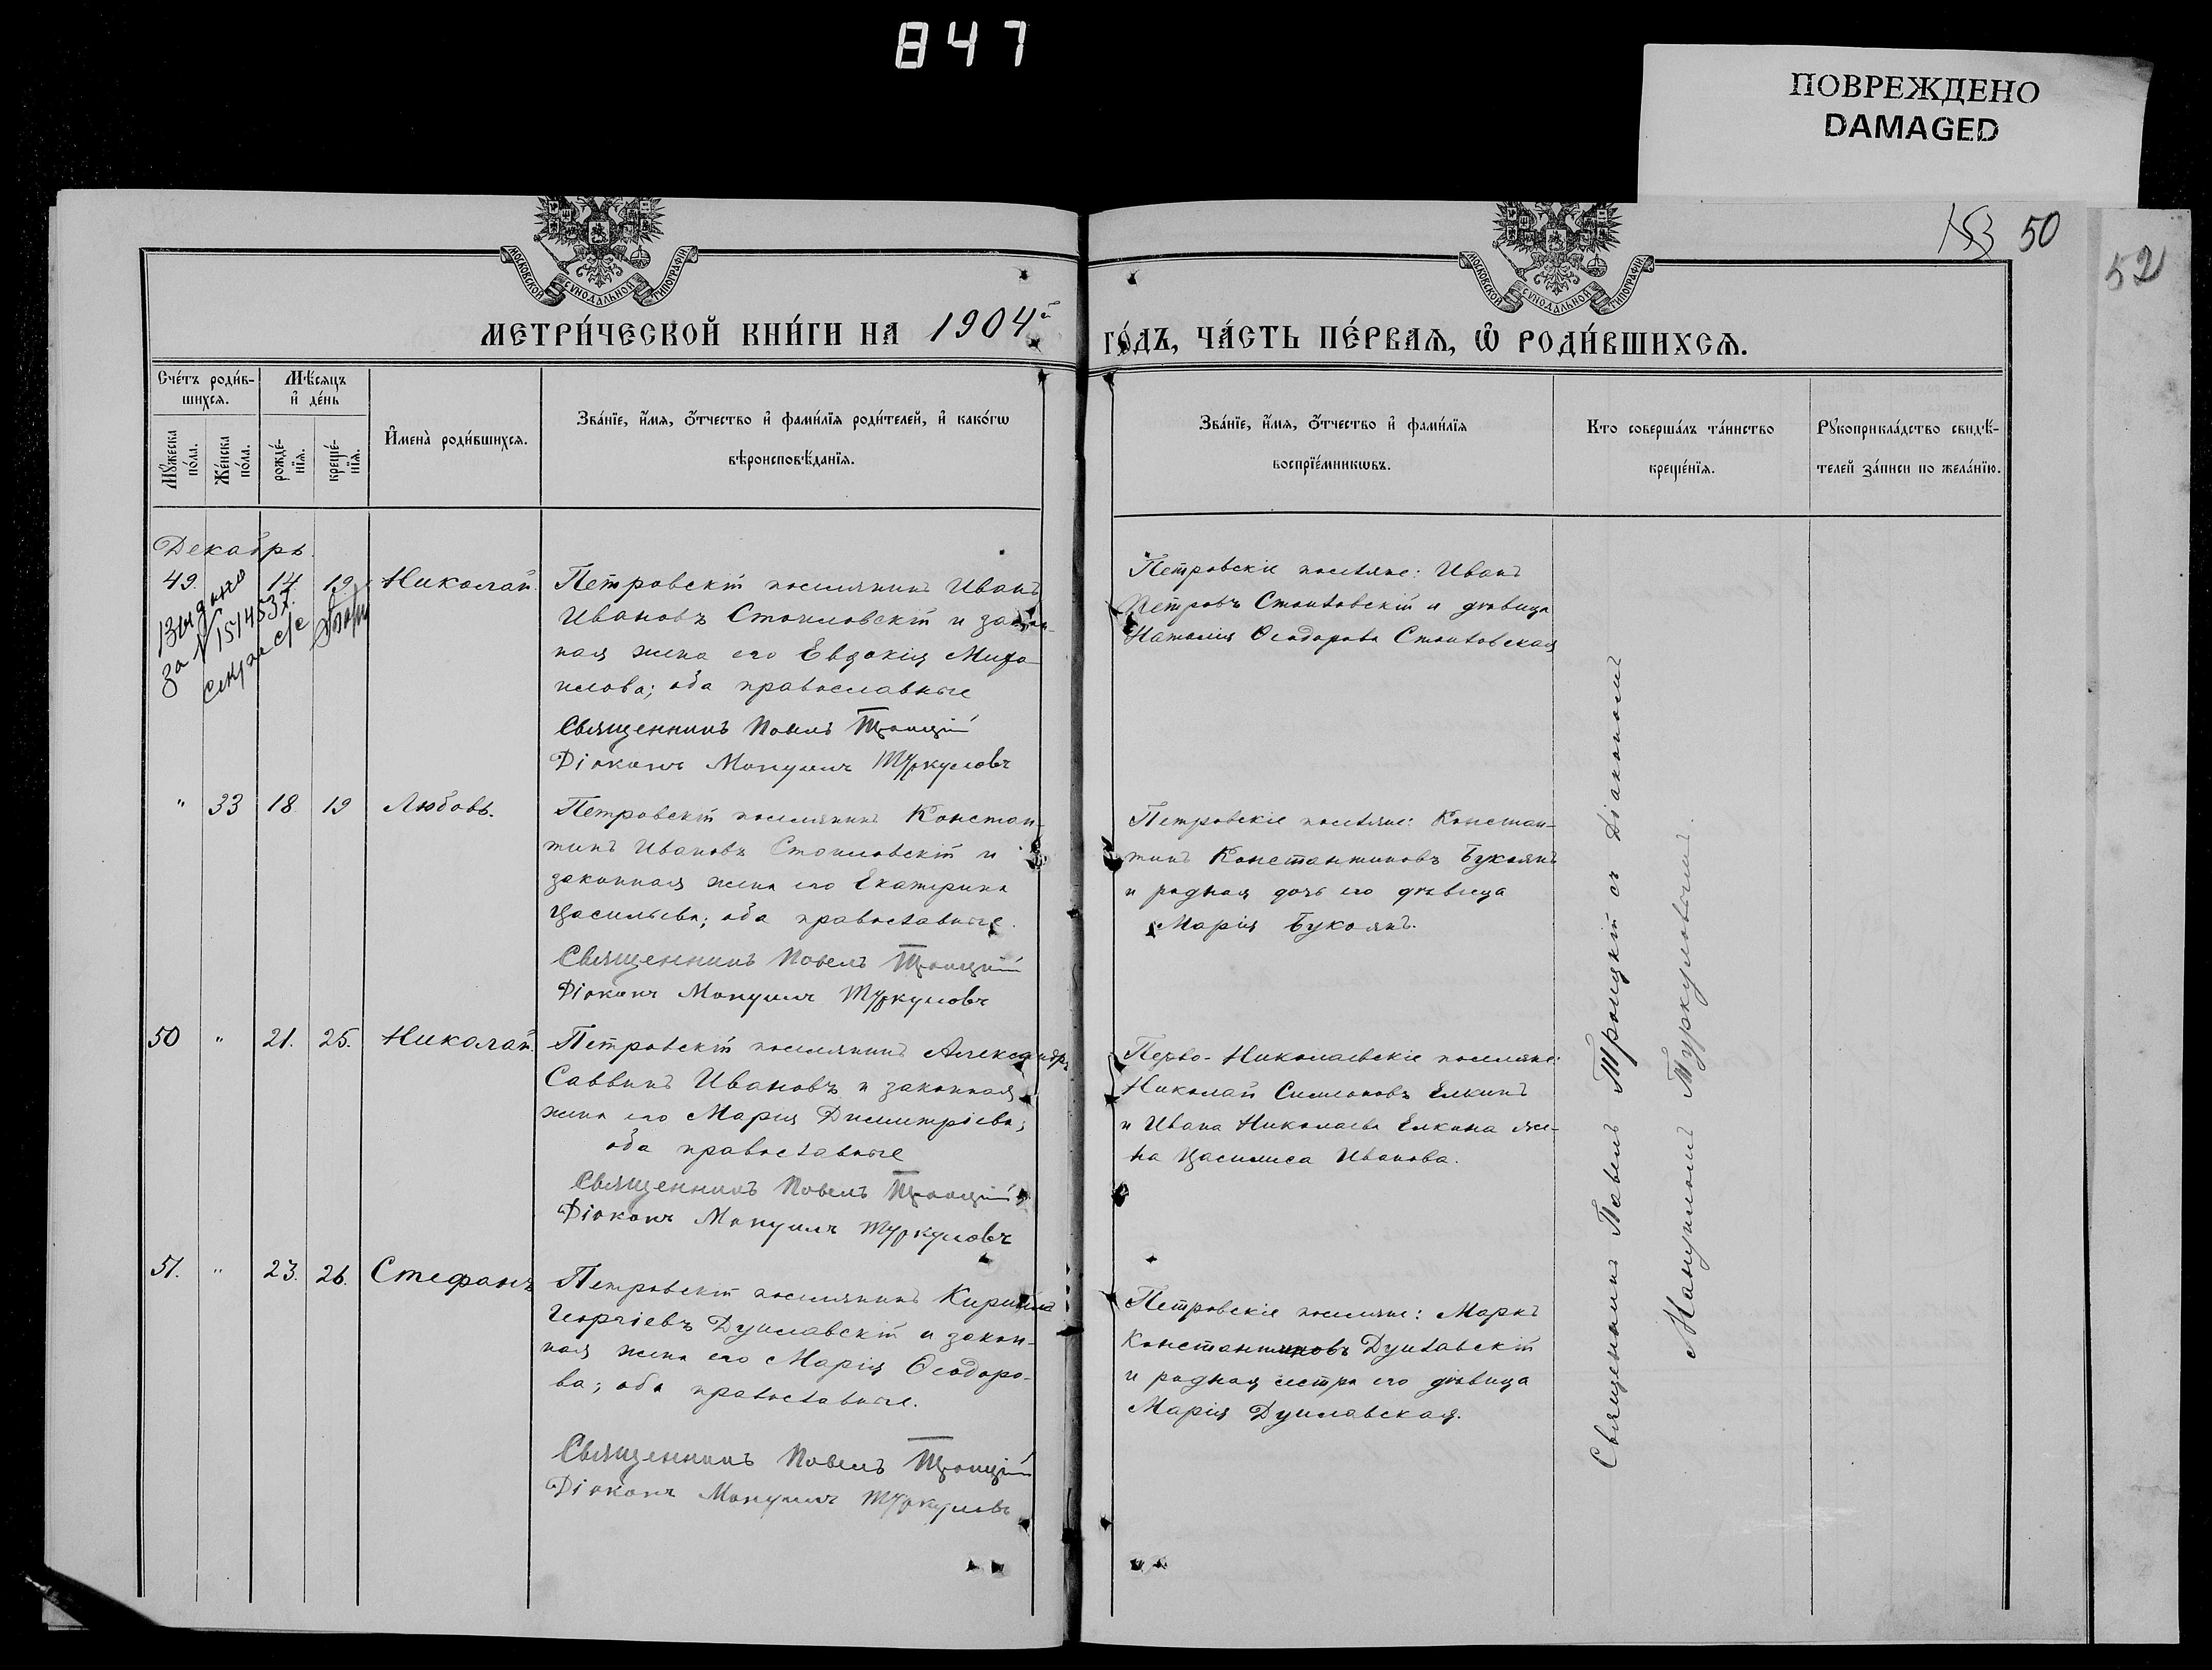 847
ПОВРЕЖДЕНО
DAMAGED
153 50
52
МОСКОВСКОЙ СѴНОДАЛЬНОЙ ТИПОГРАФІИ
МОСКОВСКОЙ СѴНОДАЛЬНОЙ ТИПОГРАФІИ
МЕТРИ́ЧЕСКОЙ КНИ́ГИ НА 1904й
ГО́ДЪ, ЧА́СТЬ ПЕ́РВАѦ, Ѽ РОДИ́ВШИХСѦ.
Сче́тъ роди́в-
шихсѧ.
Мѣ́сѧцъ
и҆ де́нь
Мꙋ́жеска
по́ла.
Же́нска
по́ла.
рожде́-
нїѧ.
креще́-
нїѧ.
И҆мена̀ роди́вшихсѧ.
Зва́нїе, и҆́мѧ, ѻ҆́тчество и҆ фами́лїѧ роди́телей, и҆ како́гѡ
вѣроисповѣ́данїѧ.
Зва́нїе, и҆́мѧ, ѻ҆́тчество и҆ фами́лїѧ
воспрїе́мникѡвъ.
Кто соверша́лъ та́инство
креще́нїѧ.
Рꙋкоприкла́дство свидѣ́-
телей за́писи по жела́нїю.
Декабрь.
49. 14. 19. Николай.
за № 1514537.
Петровскій поселянинъ Иванъ
Ивановъ Стоиловскій и закон-
ная жена его Евдокія Михаи-
илова; оба православные
Священникъ Павелъ Троицкій
Діаконъ Мануилъ Туркуловъ
Петровскіе поселяне: Иванъ
Петровъ Стоиловскій и дѣвица
Наталія Ѳеодорова Стоиловская
" 33 18. 19 Любовь.
Петровскій поселянинъ Констан-
тинъ Ивановъ Стоиловскій и
законная жена его Екатерина
Васильева; оба православные.
Священникъ Павелъ Троицкій
Діаконъ Мануилъ Туркуловъ
Петровскіе поселяне: Констан-
тинъ Константиновъ Букоянъ
и родная дочь его дѣвица
Марія Букоянъ.
50 " 21. 25. Николай.
Петровскій поселянинъ Александръ
Саввинъ Ивановъ и законная
жена его Марія Димитріева;
оба православные
Священникъ Павелъ Троицкій
Діаконъ Мануилъ Туркуловъ
Перво-Николаевскіе поселяне:
Николай Симеоновъ Елкинъ
и Ивана Николаева Елкина же-
на Василиса Иванова.
51. " 23. 26. Стефанъ
Петровскій поселянинъ Кирилла
Георгіевъ Дуиловскій и закон-
ная жена его Марія Ѳеодоро-
ва; оба православные.
Священникъ Павелъ Троицкій
Діаконъ Мануилъ Туркуловъ
Петровскіе поселяне: Маркъ
Константиновъ Дуиловскій
и родная сестра его дѣвица
Марія Дуиловская.
Священникъ Павелъ Троицкій съ Діакономъ
Мануиломъ Туркуловымъ.